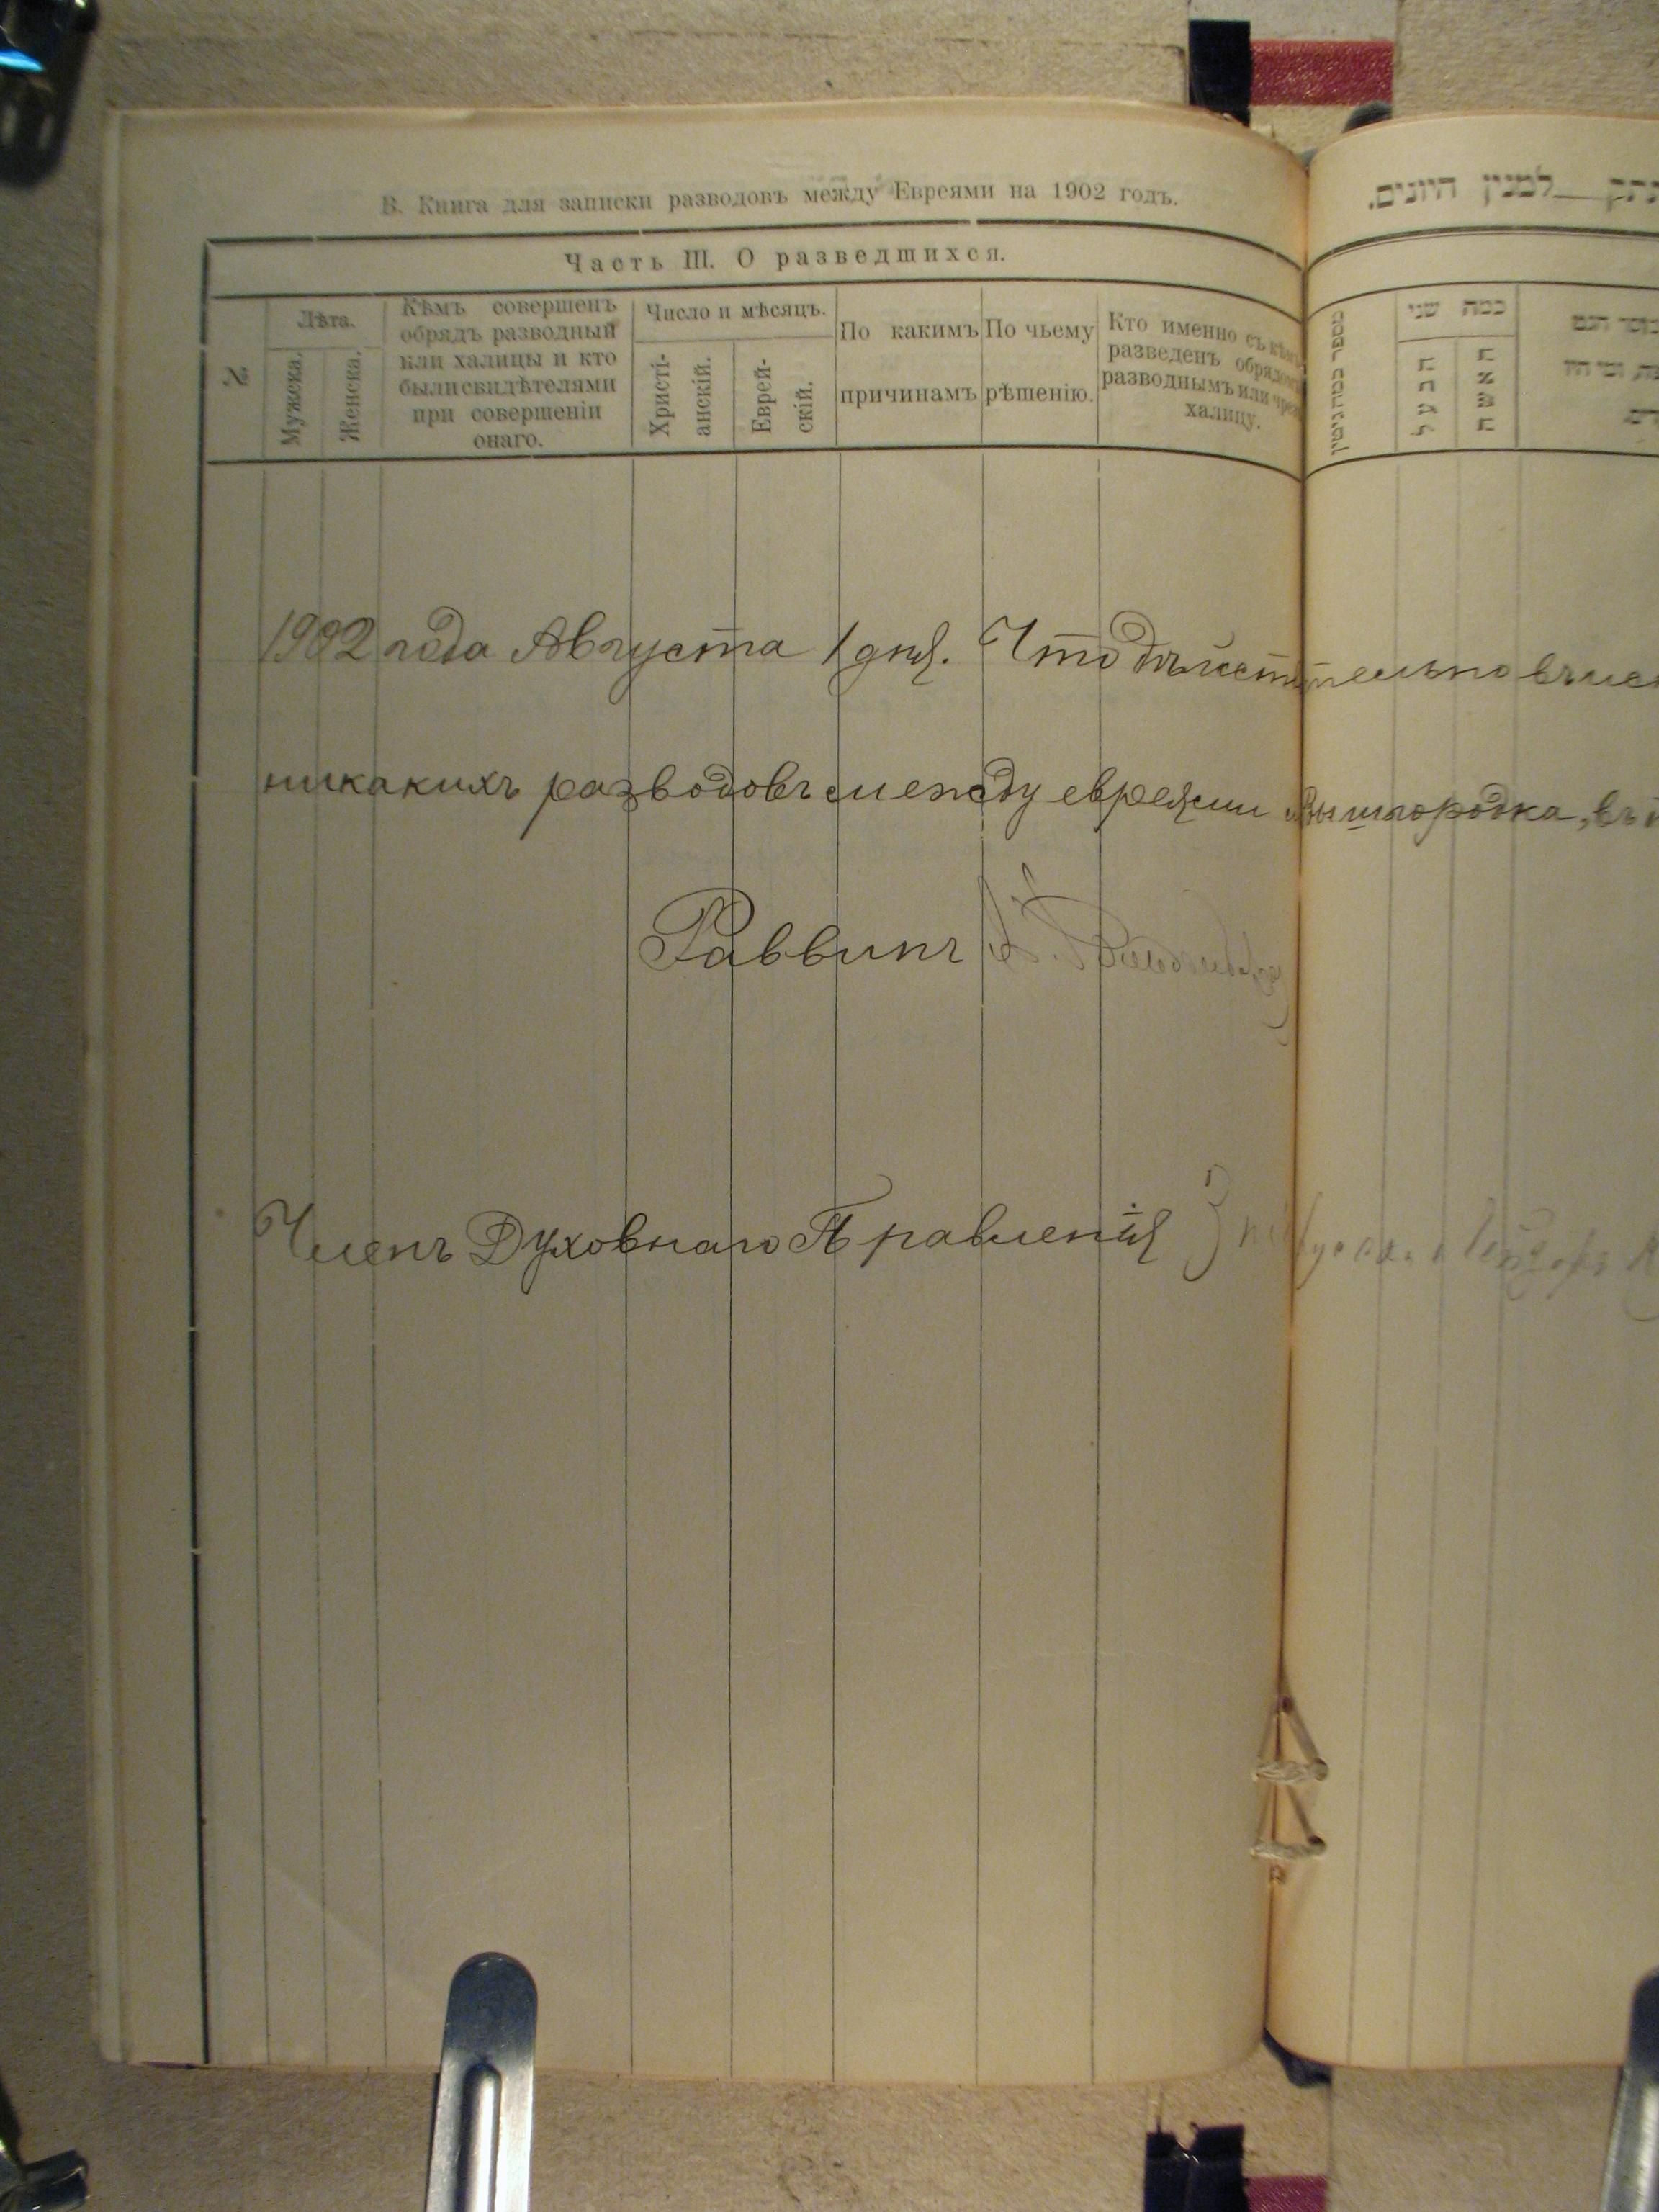 В. Книга для записки разводовъ между Евреями на 1902 годъ.
למנין היונים.
Часть III. О разведшихся.
№
Лѣта.
Мужска.
Женска.
Кѣмъ совершенъ
обрядъ разводный
или халицы и кто
были свидѣтелями
при совершеніи
онаго.
Число и мѣсяцъ.
Христі-
анскій.
Еврей-
скій.
По какимъ
причинамъ
По чьему
рѣшенію.
Кто именно съ кѣмъ
разведенъ обрядомъ
разводнымъ или чрез
халицу.
כמה שני
הבעל
האשה
1902 года Августа 1 дня. Что дѣйствительно въ
никакихъ разводовъ между евреями Вышгородка, въ
Раввинъ
Членъ Духовнаго Правленія